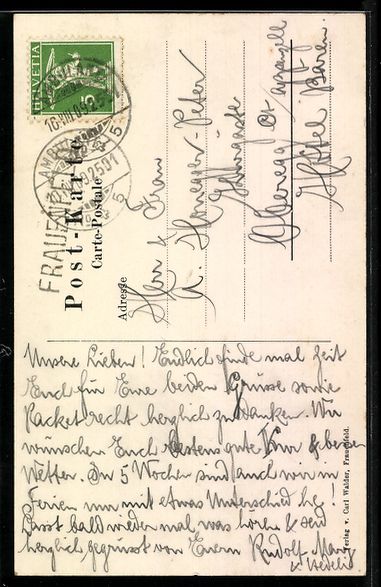 HELVETIA
5
AMBULANT
FRAUENFELD
Post-Karte
Carte-Postale
Adresse
Herr & Frau
A. Honegger-Peter
Kurgäste
Oberegg Ct Appenzell
Hôtel Bären
Unsere Lieben! Endlich finde mal Zeit
Euch für Eure beiden Grüsse sowie
Packet recht herzlich zu danken. Wir
wünschen Euch bestens gute Kur & besser
Wetter. In 5 Wochen sind auch wir in
Ferien nun mit etwas Unterschied hg!
Lasst bald wieder mal was hören & seid
herzlich gegrüsst von Euern Rudolf Mary
& Hedeli
Verlag v. Carl Walder, Frauenfeld.